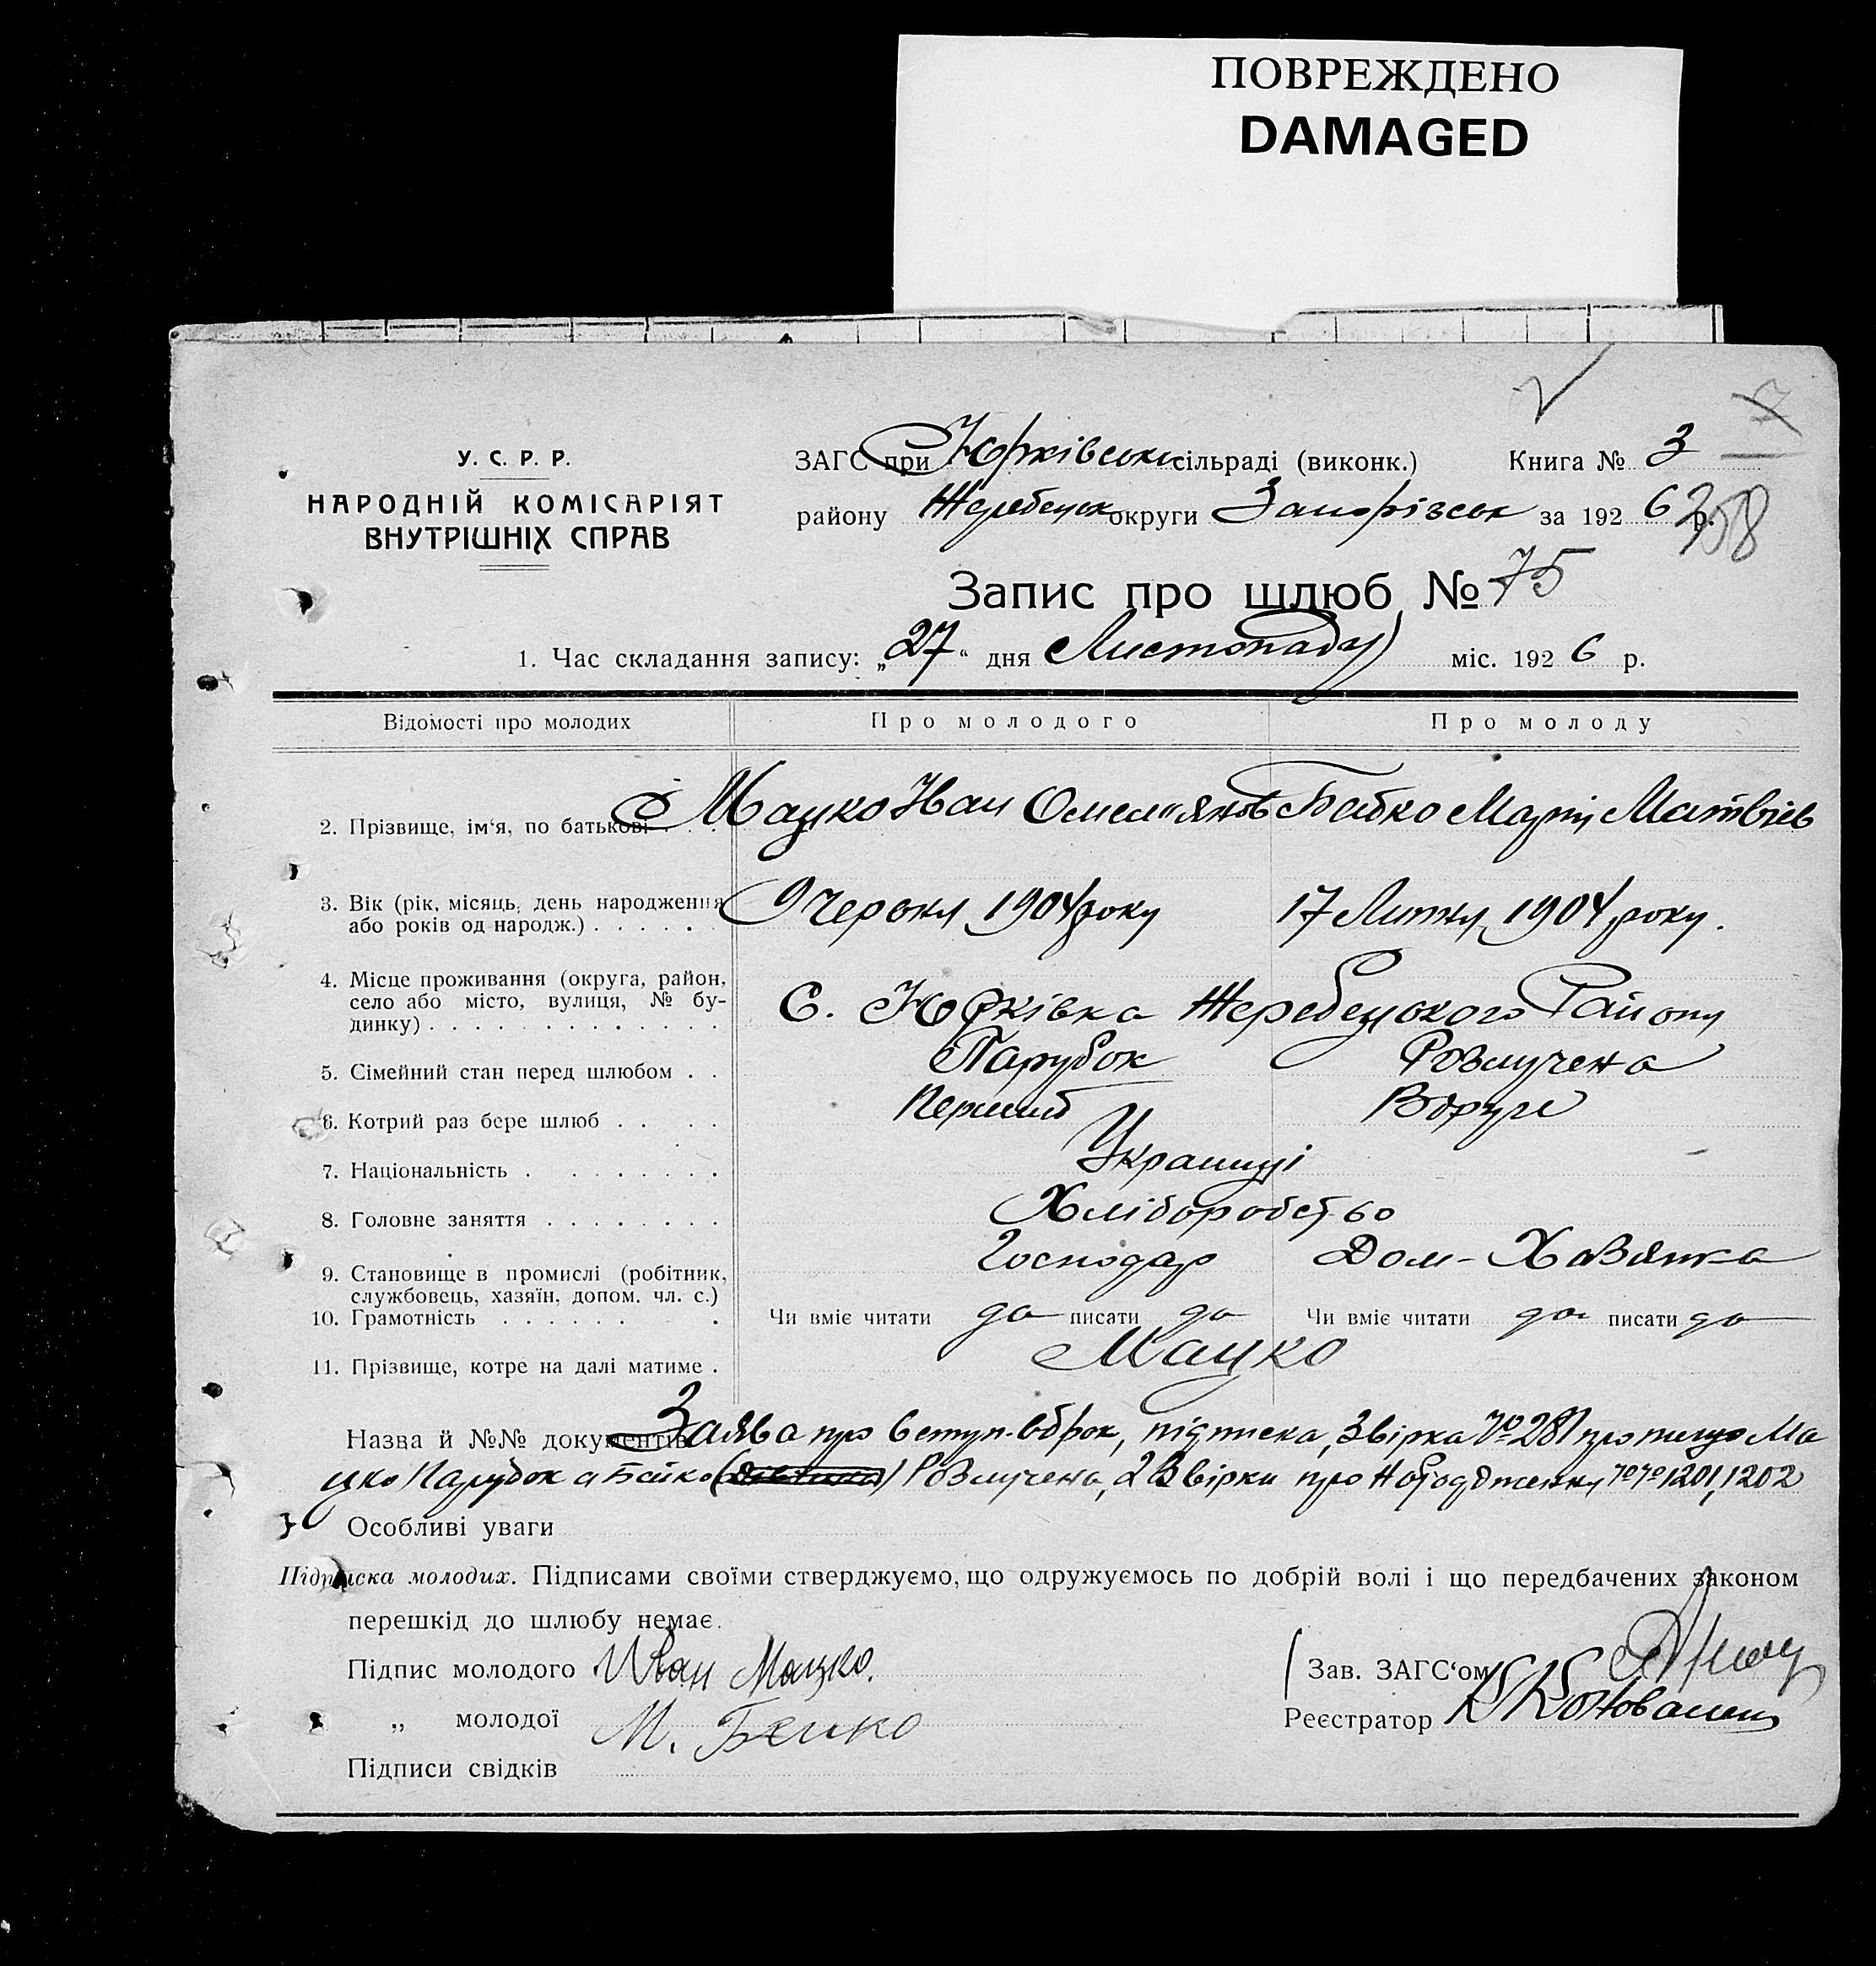 ПОВРЕЖДЕНО
DAMAGED
У. С. Р. Р.
НАРОДНІЙ КОМІСАРІЯТ
ВНУТРІШНІХ СПРАВ
ЗАГС при Юрківськи сільраді (виконк.) Книга № 3
району Жеребецьк округи Запорізськ за 1926 р.
358
Запис про шлюб № 75
1. Час складання запису: „27“ дня Листопаду міс. 1926 р.
Відомості про молодих Про молодого Про молоду
2. Прізвище, ім‘я, по батькові . . . Мацко Иван Омел"янов Бабко Марія Матвіів
3. Вік (рік, місяць, день народження або років од народж.) . . . . . . 9 Червня 1904 року 17 Липня 1904 року.
4. Місце проживання (округа, район, село або місто, вулиця, № будинку) . . . . . . . . . . . . . С. Юрківка Жеребецького Району
5. Сімейний стан перед шлюбом . . Парубок Розлучена
6. Котрий раз бере шлюб . . . . Перший Вдруге
7. Національність . . . . . . . . Украинці
8. Головне заняття . . . . . . . . Хліборобство
9. Становище в промислі (робітник, службовець, хазяїн, допом. чл. с.) Господар Дом-Хозяйка
10. Грамотність . . . . . . . Чи вміє читати да писати да Чи вміє читати да писати да
11. Прізвище, котре на далі матиме . Мацко
Назва й №№ документів Заява про вступ. в брак, підписка, Звірка № 281 про те що Ма
цко Парубок а Бейко Розлучена, 2 Звірки про Народження №№ 1201, 1202
Особливі уваги
Підписка молодих. Підписами своїми стверджуємо, що одружуємось по добрій волі і що передбачених законом
перешкід до шлюбу немає.
Підпис молодого Иван Мацко. Зав. ЗАГС‘ом
„ молодої М. Бейко Реєстратор
Підписи свідків